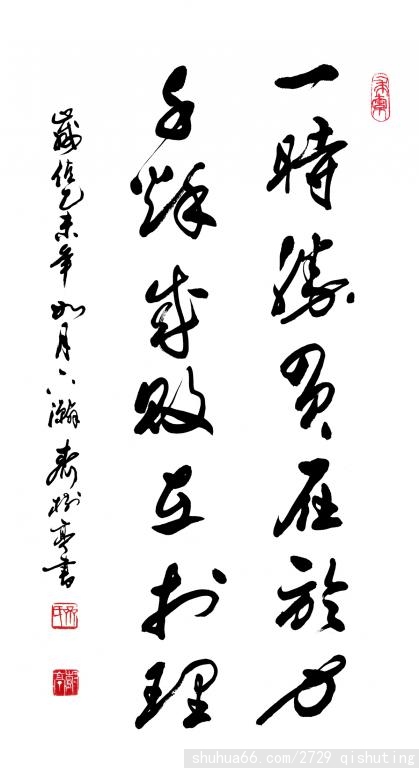 一時勝負在於力
千秋成敗在於理
歲值乙未年如月下澣齊樹亭書
shuhua66.com/2729 qishuting